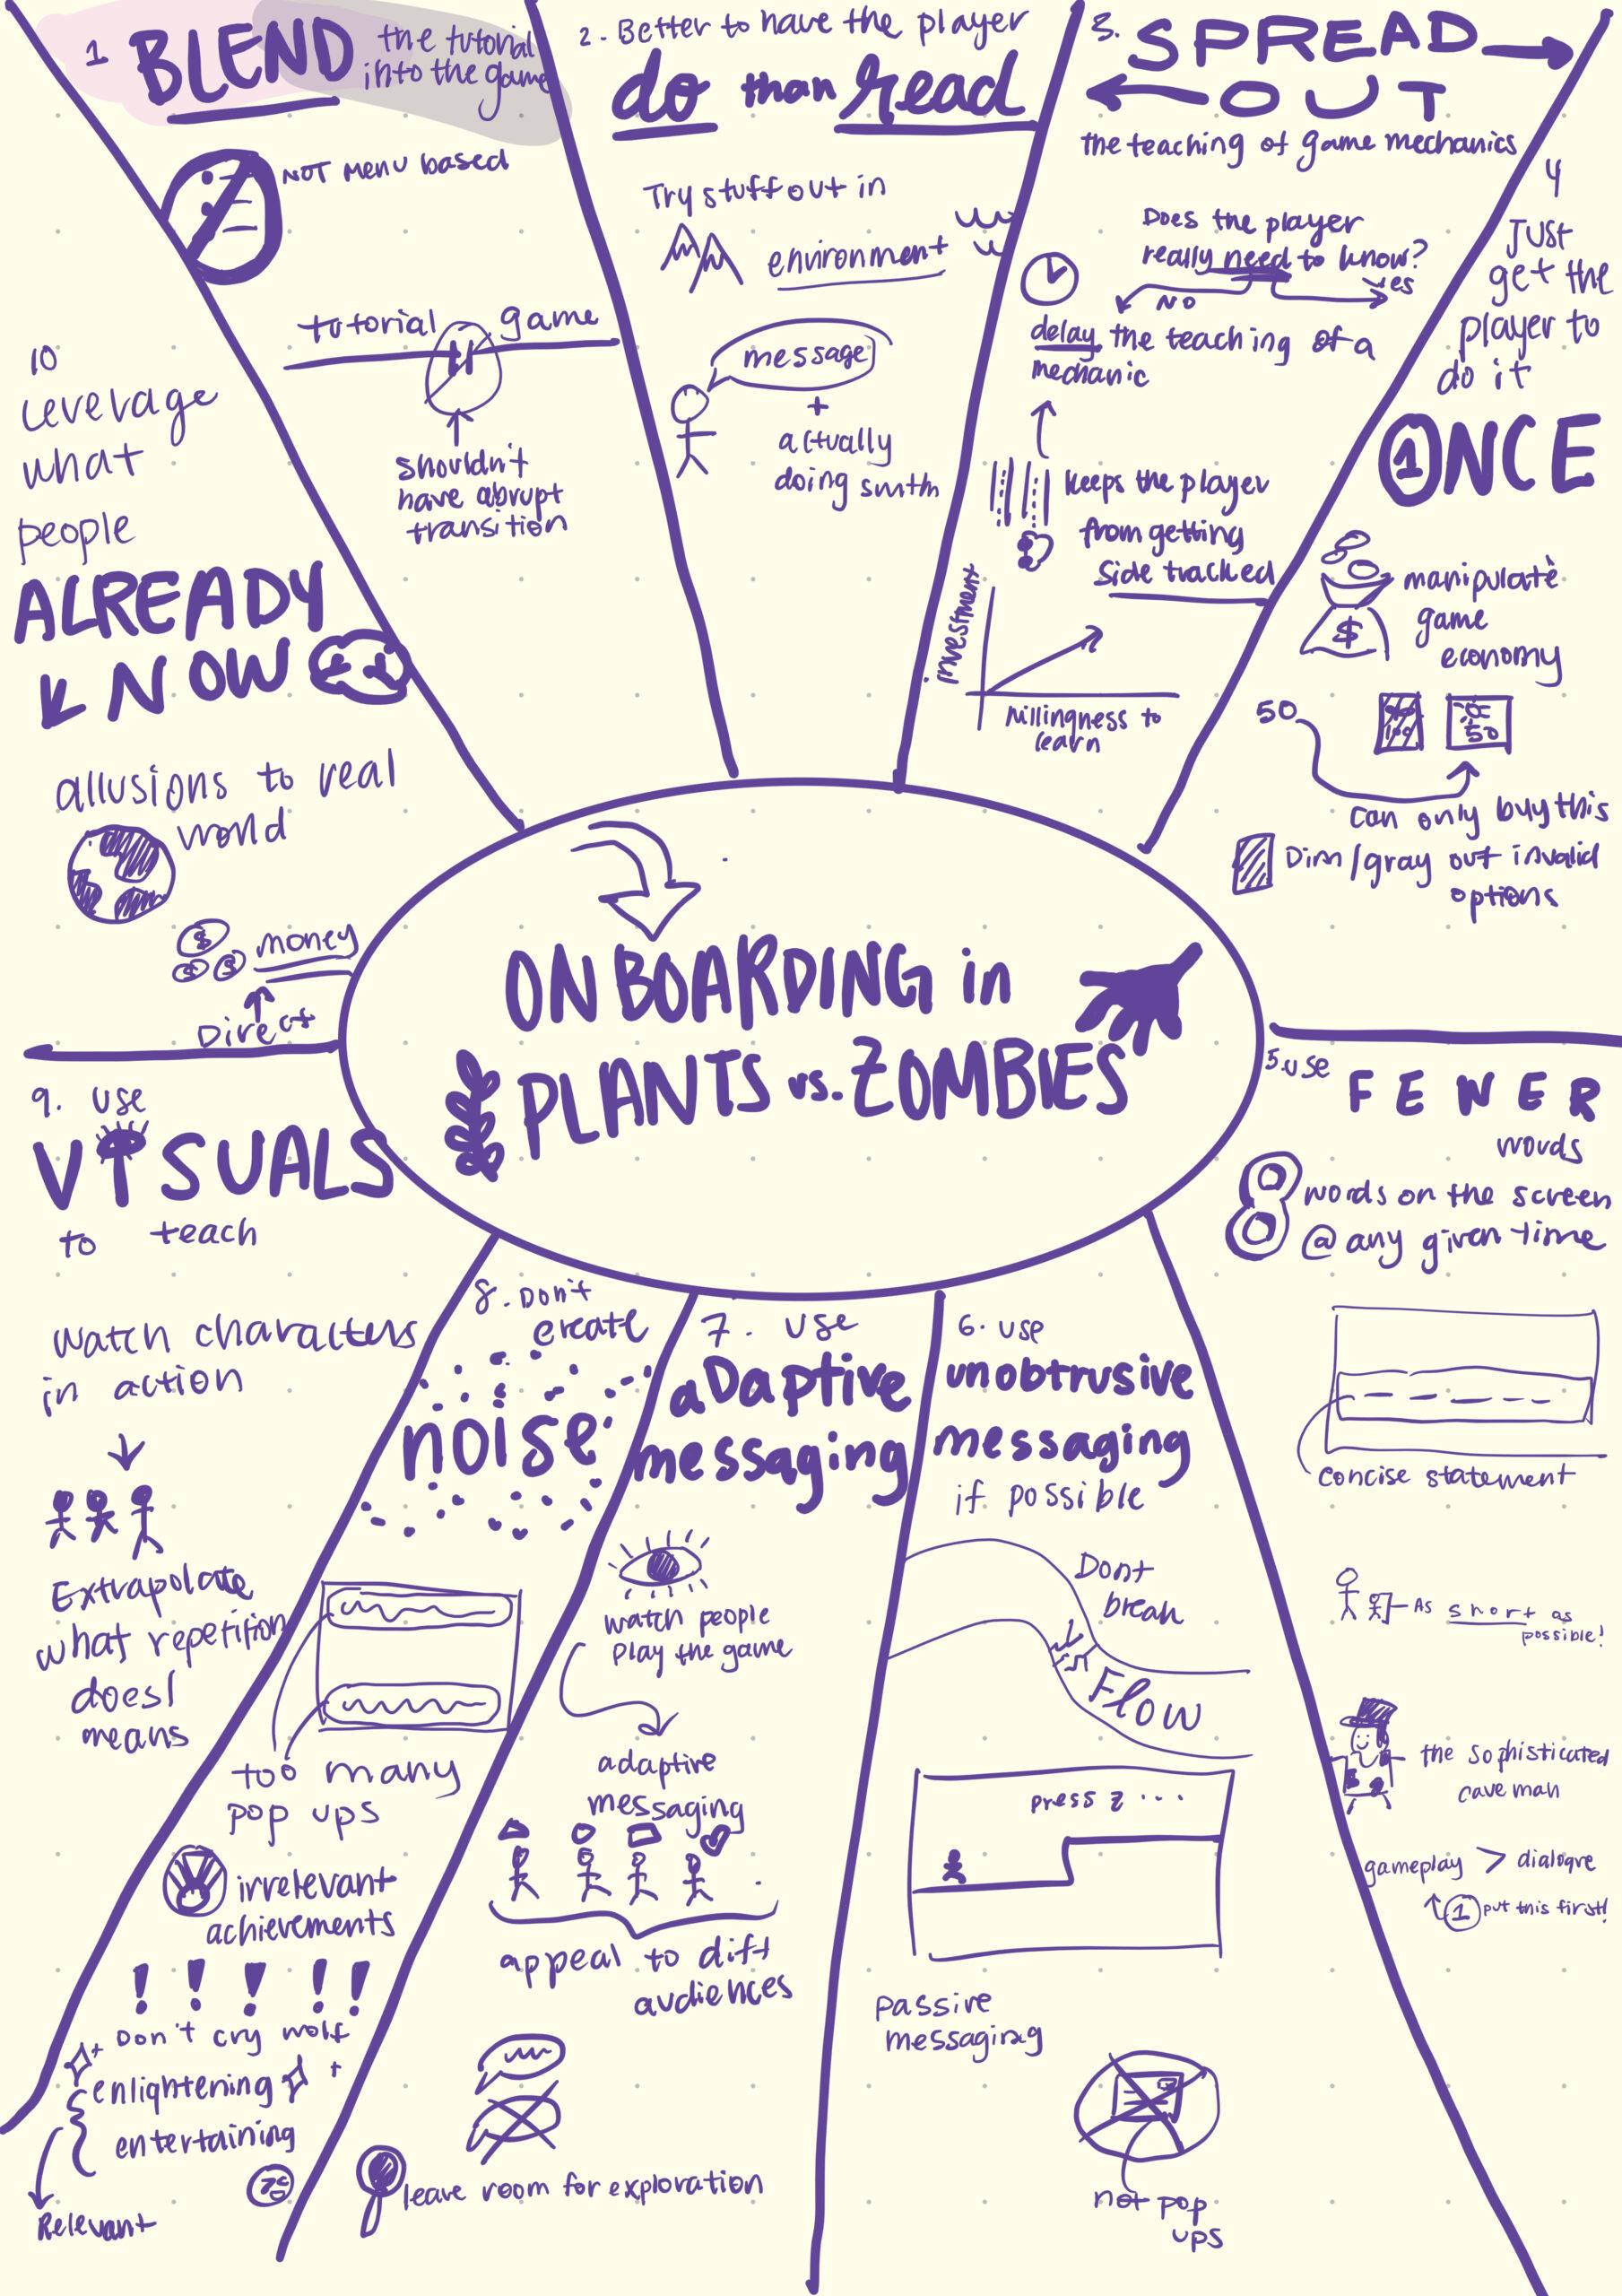 ONBOARDING in
PLANTS vs. ZOMBIES
1 BLEND the tutorial
into the game
NOT menu based
tutorial game
shouldn't
have abrupt
transition
2. Better to have the player
do than read
Try stuff out in
environment
message
+
actually
doing smth
3. SPREAD
OUT
the teaching of game mechanics
Does the player
really need to know?
NO
yes
delay the teaching of a
mechanic
keeps the player
from getting
side tracked
Investment
willingness to
learn
4
JUST
get the
player to
do it
1NCE
manipulate
game
economy
$
50
50
can only buy this
Dim/gray out invalid
options
5. use
FEWER
words
8 words on the screen
@ any given time
concise statement
As short as
possible!
the sophisticated
cave man
gameplay > dialogue
1 put this first!
6. use
unobtrusive
messaging
if possible
Dont
break
Flow
press z ...
passive
messaging
not pop
ups
7. use
adaptive
messaging
watch people
play the game
adaptive
messaging
appeal to diff
audiences
leave room for exploration
8. Don't
create
noise
too many
pop ups
irrelevant
achievements
! ! ! ! !
Don't cry wolf
enlightening
entertaining
Relevant
9. use
VISUALS
to teach
watch characters
in action
Extrapolate
what repetition
does/
means
10
leverage
what
people
ALREADY
KNOW
allusions to real
world
$ $ $ money
Direct